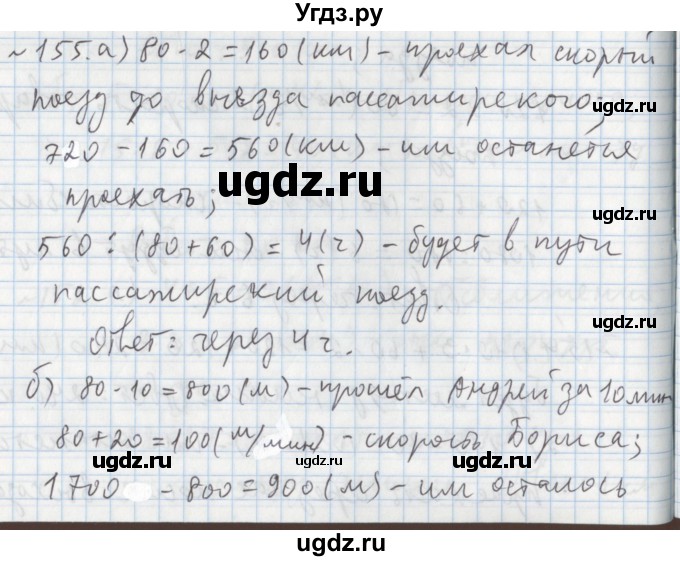 Угдз.ру
№155.а) 80·2=160(км) – проехал скорый
поезд до выезда пассажирского;
720 – 160 = 560(км) – им останется
проехать;
ugdz.ru
560 : (80+60) = 4(ч) – будет в пути
пассажирский поезд.
Ответ: через 4 ч.
б) 80·10=800(м) – прошёл Андрей за 10мин
80+20=100(м/мин) – скорость Бориса;
1700 – 800=900(м) – им осталось
ugdz.ru
ugdz.ru
ugdz.ru
ugdz.ru
ugdz.ru
ugdz.ru
ugdz.ru
ugdz.ru